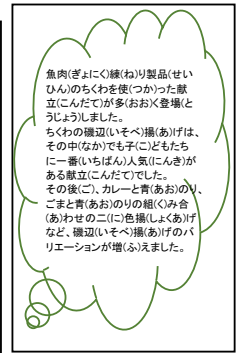 魚肉(ぎょにく)練(ね)り製品(せい
ひん)のちくわを使(つか)った献
立(こんだて)が多(おお)く登場(と
うじょう)しました。
ちくわの磯辺(いそべ)揚(あ)げは、
その中(なか)でも子(こ)どもたち
に一番(いちばん)人気(にんき)が
ある献立(こんだて)でした。
その後(ご)、カレーと青(あお)のり、
ごまと青(あお)のりの組(く)み合
(あ)わせの二(に)色揚(しょくあ)げ
など、磯辺(いそべ)揚(あ)げのバ
リエーションが増(ふ)えました。